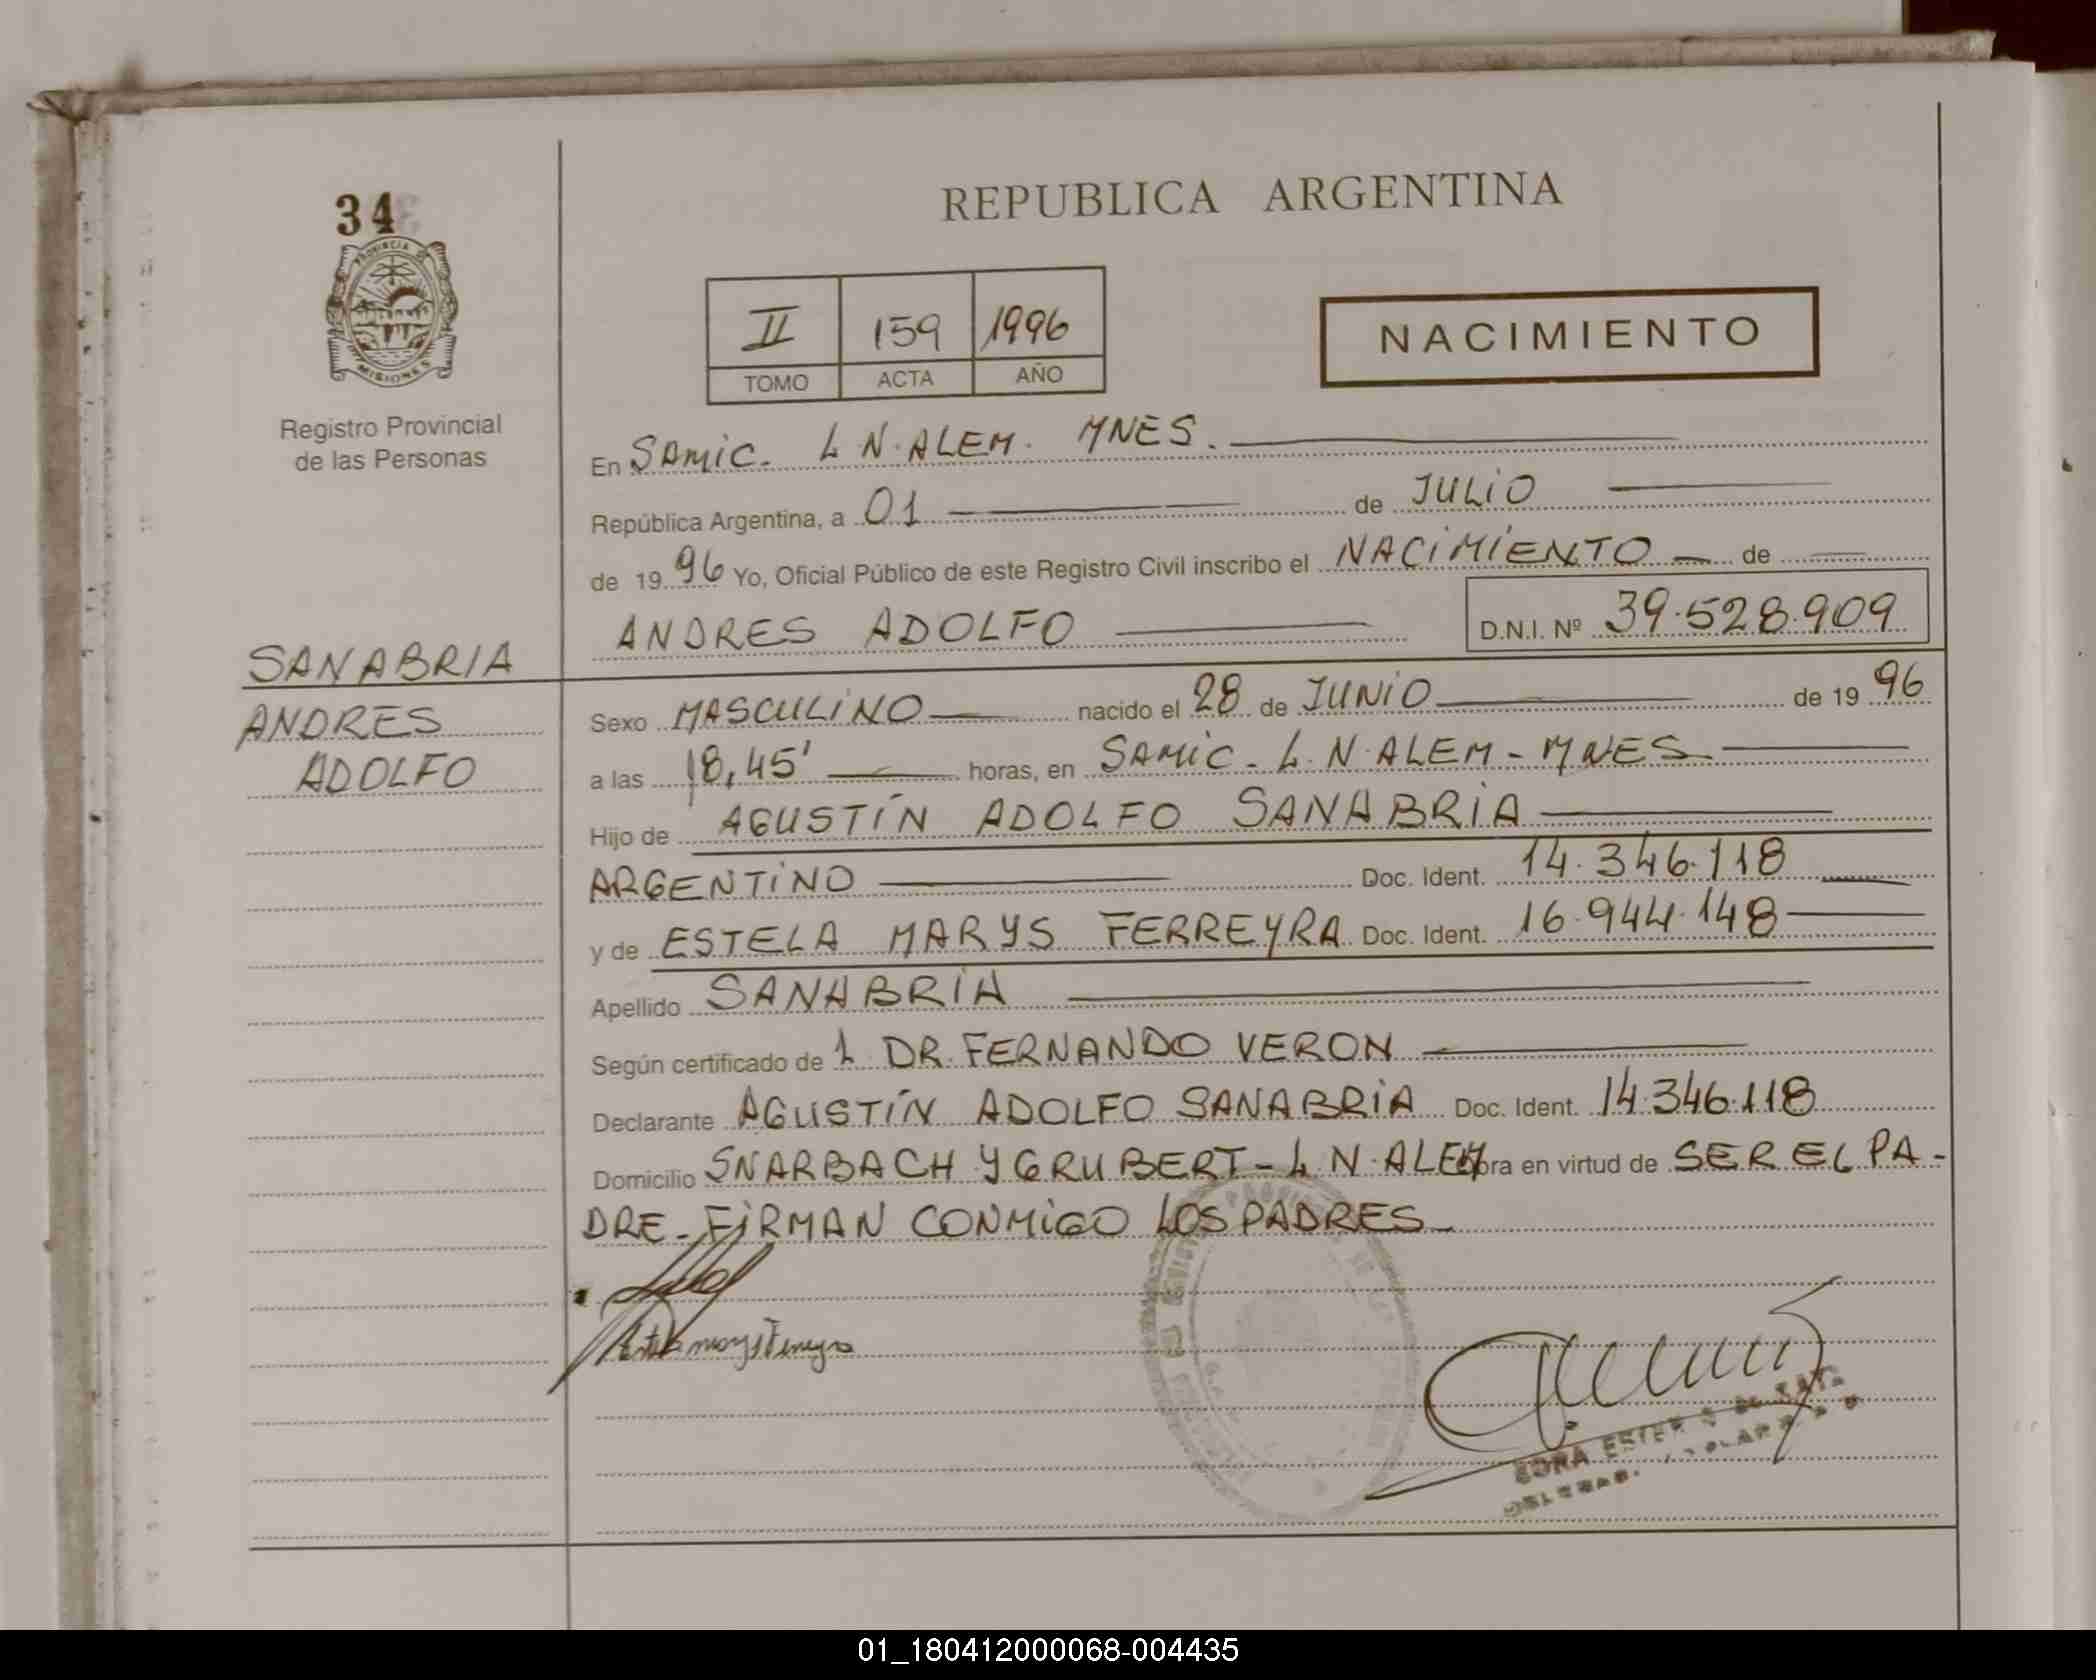 34
PROVINCIA DE
MISIONES
Registro Provincial
de las Personas
REPUBLICA ARGENTINA
II 159 1996
TOMO ACTA AÑO
NACIMIENTO
En SAMIC. L N. ALEM. MNES.
República Argentina, a 01 de JULIO
de 1996 Yo, Oficial Público de este Registro Civil inscribo el NACIMIENTO de
ANDRES ADOLFO D.N.I. Nº 39.528.909
SANABRIA
ANDRES
ADOLFO
Sexo MASCULINO nacido el 28 de JUNIO de 1996
a las 18,45' horas, en SAMIC - L. N. ALEM - MNES
Hijo de AGUSTÍN ADOLFO SANABRIA
ARGENTINO Doc. Ident. 14.346.118
y de ESTELA MARYS FERREYRA Doc. Ident. 16.944.148
Apellido SANABRIA
Según certificado de L DR. FERNANDO VERON
Declarante AGUSTÍN ADOLFO SANABRIA Doc. Ident. 14.346.118
Domicilio SNARBACH Y GRUBERT - L. N. ALEM obra en virtud de SER EL PA-
DRE - FIRMAN CONMIGO LOS PADRES -
ESTER
01_180412000068-004435